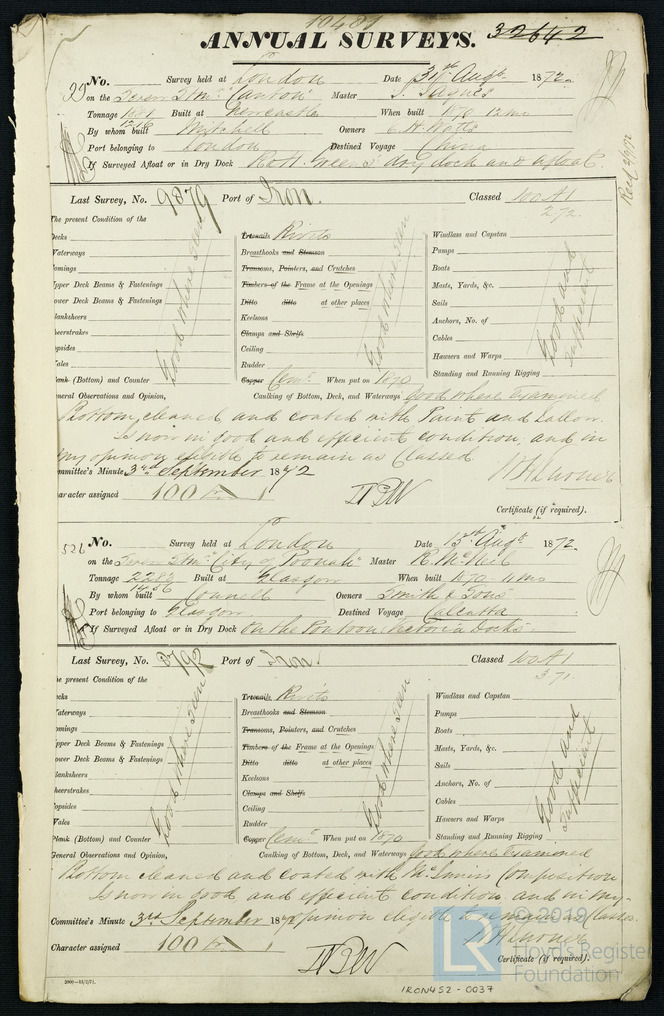 10481
ANNUAL SURVEYS. 32642
No. Survey held at London Date 31st Augt. 1872.
on the Screw Str. "Canton" Master J. Jaques
Tonnage Built at Newcastle When built 1870 12mo
1216
By whom built Mitchell Owners
Port belonging to London Destined Voyage China
If Surveyed Afloat or in Dry Dock R & H. Green's dry dock and afloat.
Recd 2/9/72
Last Survey, No. 9879 Port of Iron. Classed 100A1
2.72.
The present Condition of the
Decks
Waterways
Comings
Upper Deck Beams & Fastenings
Lower Deck Beams & Fastenings
Planksheers
Sheerstrakes
Topsides
Wales
Plank (Bottom) and Counter
Good where seen
Treenails Rivets
Breasthooks and Stemson
Transoms, Pointers, and Crutches
Timbers of the Frame at the Openings
Ditto ditto at other places
Keelsons
Clamps and Shelfs
Ceiling
Rudder
Copper Cemt. When put on 1870
Good where seen
Windlass and Capstan
Pumps
Boats
Masts, Yards, &c.
Sails
Anchors, No. of
Cables
Hawsers and Warps
Standing and Running Rigging
Good and
Sufficient
General Observations and Opinion, Caulking of Bottom, Deck, and Waterways Good where Examined
Bottom, cleaned and coated with Paint and Tallow.
Is now in good and efficient condition, and in
my opinion eligible to remain as Classed
Committee's Minute 3rd September 1872
Character assigned 100 A 1
Certificate (if required).
No. Survey held at London Date 15th Augt. 1872.
526
on the Screw Str. "City of Poonah" Master R. McNeil
Tonnage Built at Glasgow When built 1870 11mo
By whom built Connell Owners Smith & Sons
Port belonging to Glasgow Destined Voyage Calcutta
If Surveyed Afloat or in Dry Dock On the Pontoon Victoria Docks.
Last Survey, No. 3792 Port of Iron. Classed 100A1
3.71.
The present Condition of the
Decks
Waterways
Comings
Upper Deck Beams & Fastenings
Lower Deck Beams & Fastenings
Planksheers
Sheerstrakes
Topsides
Wales
Plank (Bottom) and Counter
Good where seen
Treenails Rivets
Breasthooks and Stemson
Transoms, Pointers, and Crutches
Timbers of the Frame at the Openings
Ditto ditto at other places
Keelsons
Clamps and Shelfs
Ceiling
Rudder
Copper Cemt. When put on 1870
Good where seen
Windlass and Capstan
Pumps
Boats
Masts, Yards, &c.
Sails
Anchors, No. of
Cables
Hawsers and Warps
Standing and Running Rigging
Good and
Sufficient
General Observations and Opinion, Caulking of Bottom, Deck, and Waterways Good where Examined
Bottom cleaned and coated with McInnis Composition
Is now in good and efficient condition and in my
Committee's Minute 3rd September 1872 opinion eligible to remain as Classed
Character assigned 100 A 1
Certificate (if required).
© 2019
LR Lloyd's Register
Foundation
IRON452-0037